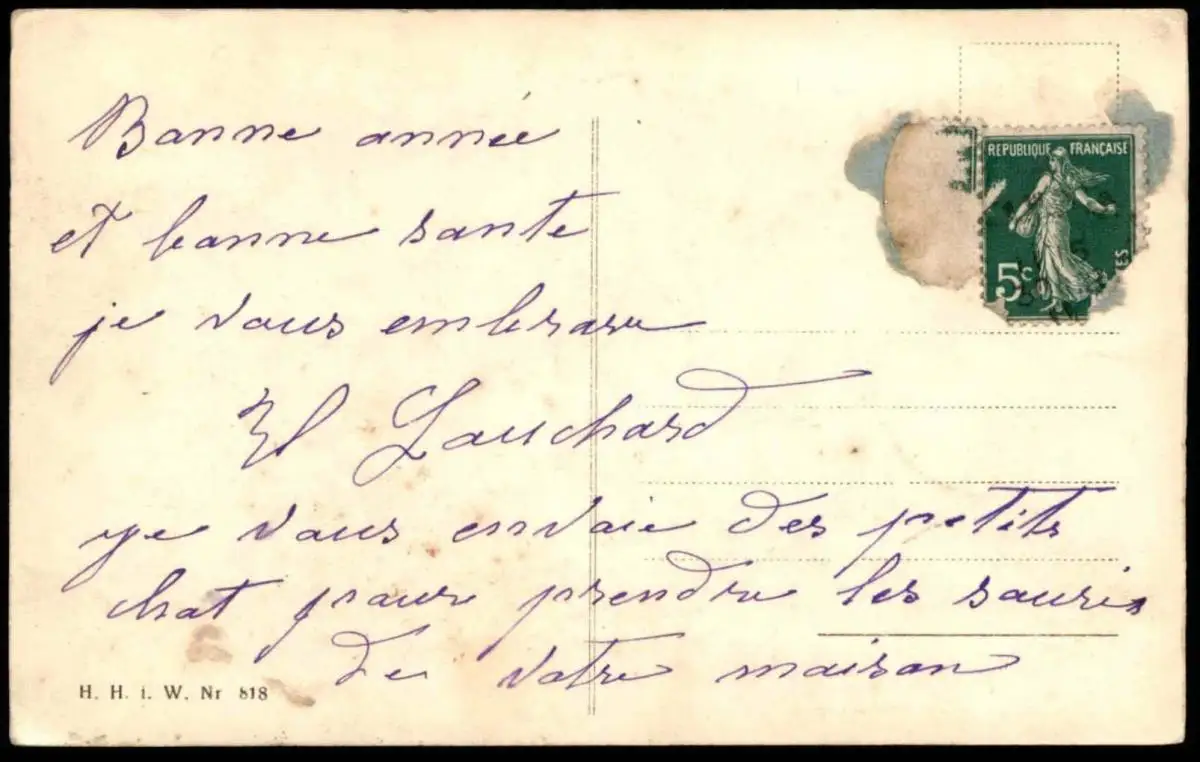 Bonne année
et bonne sante
je vous embrasse
Lauchard
je vous envoie des petits
chat pour prendre les souris
de votre maison
H. H. i. W. Nr 818
REPUBLIQUE FRANÇAISE
5c